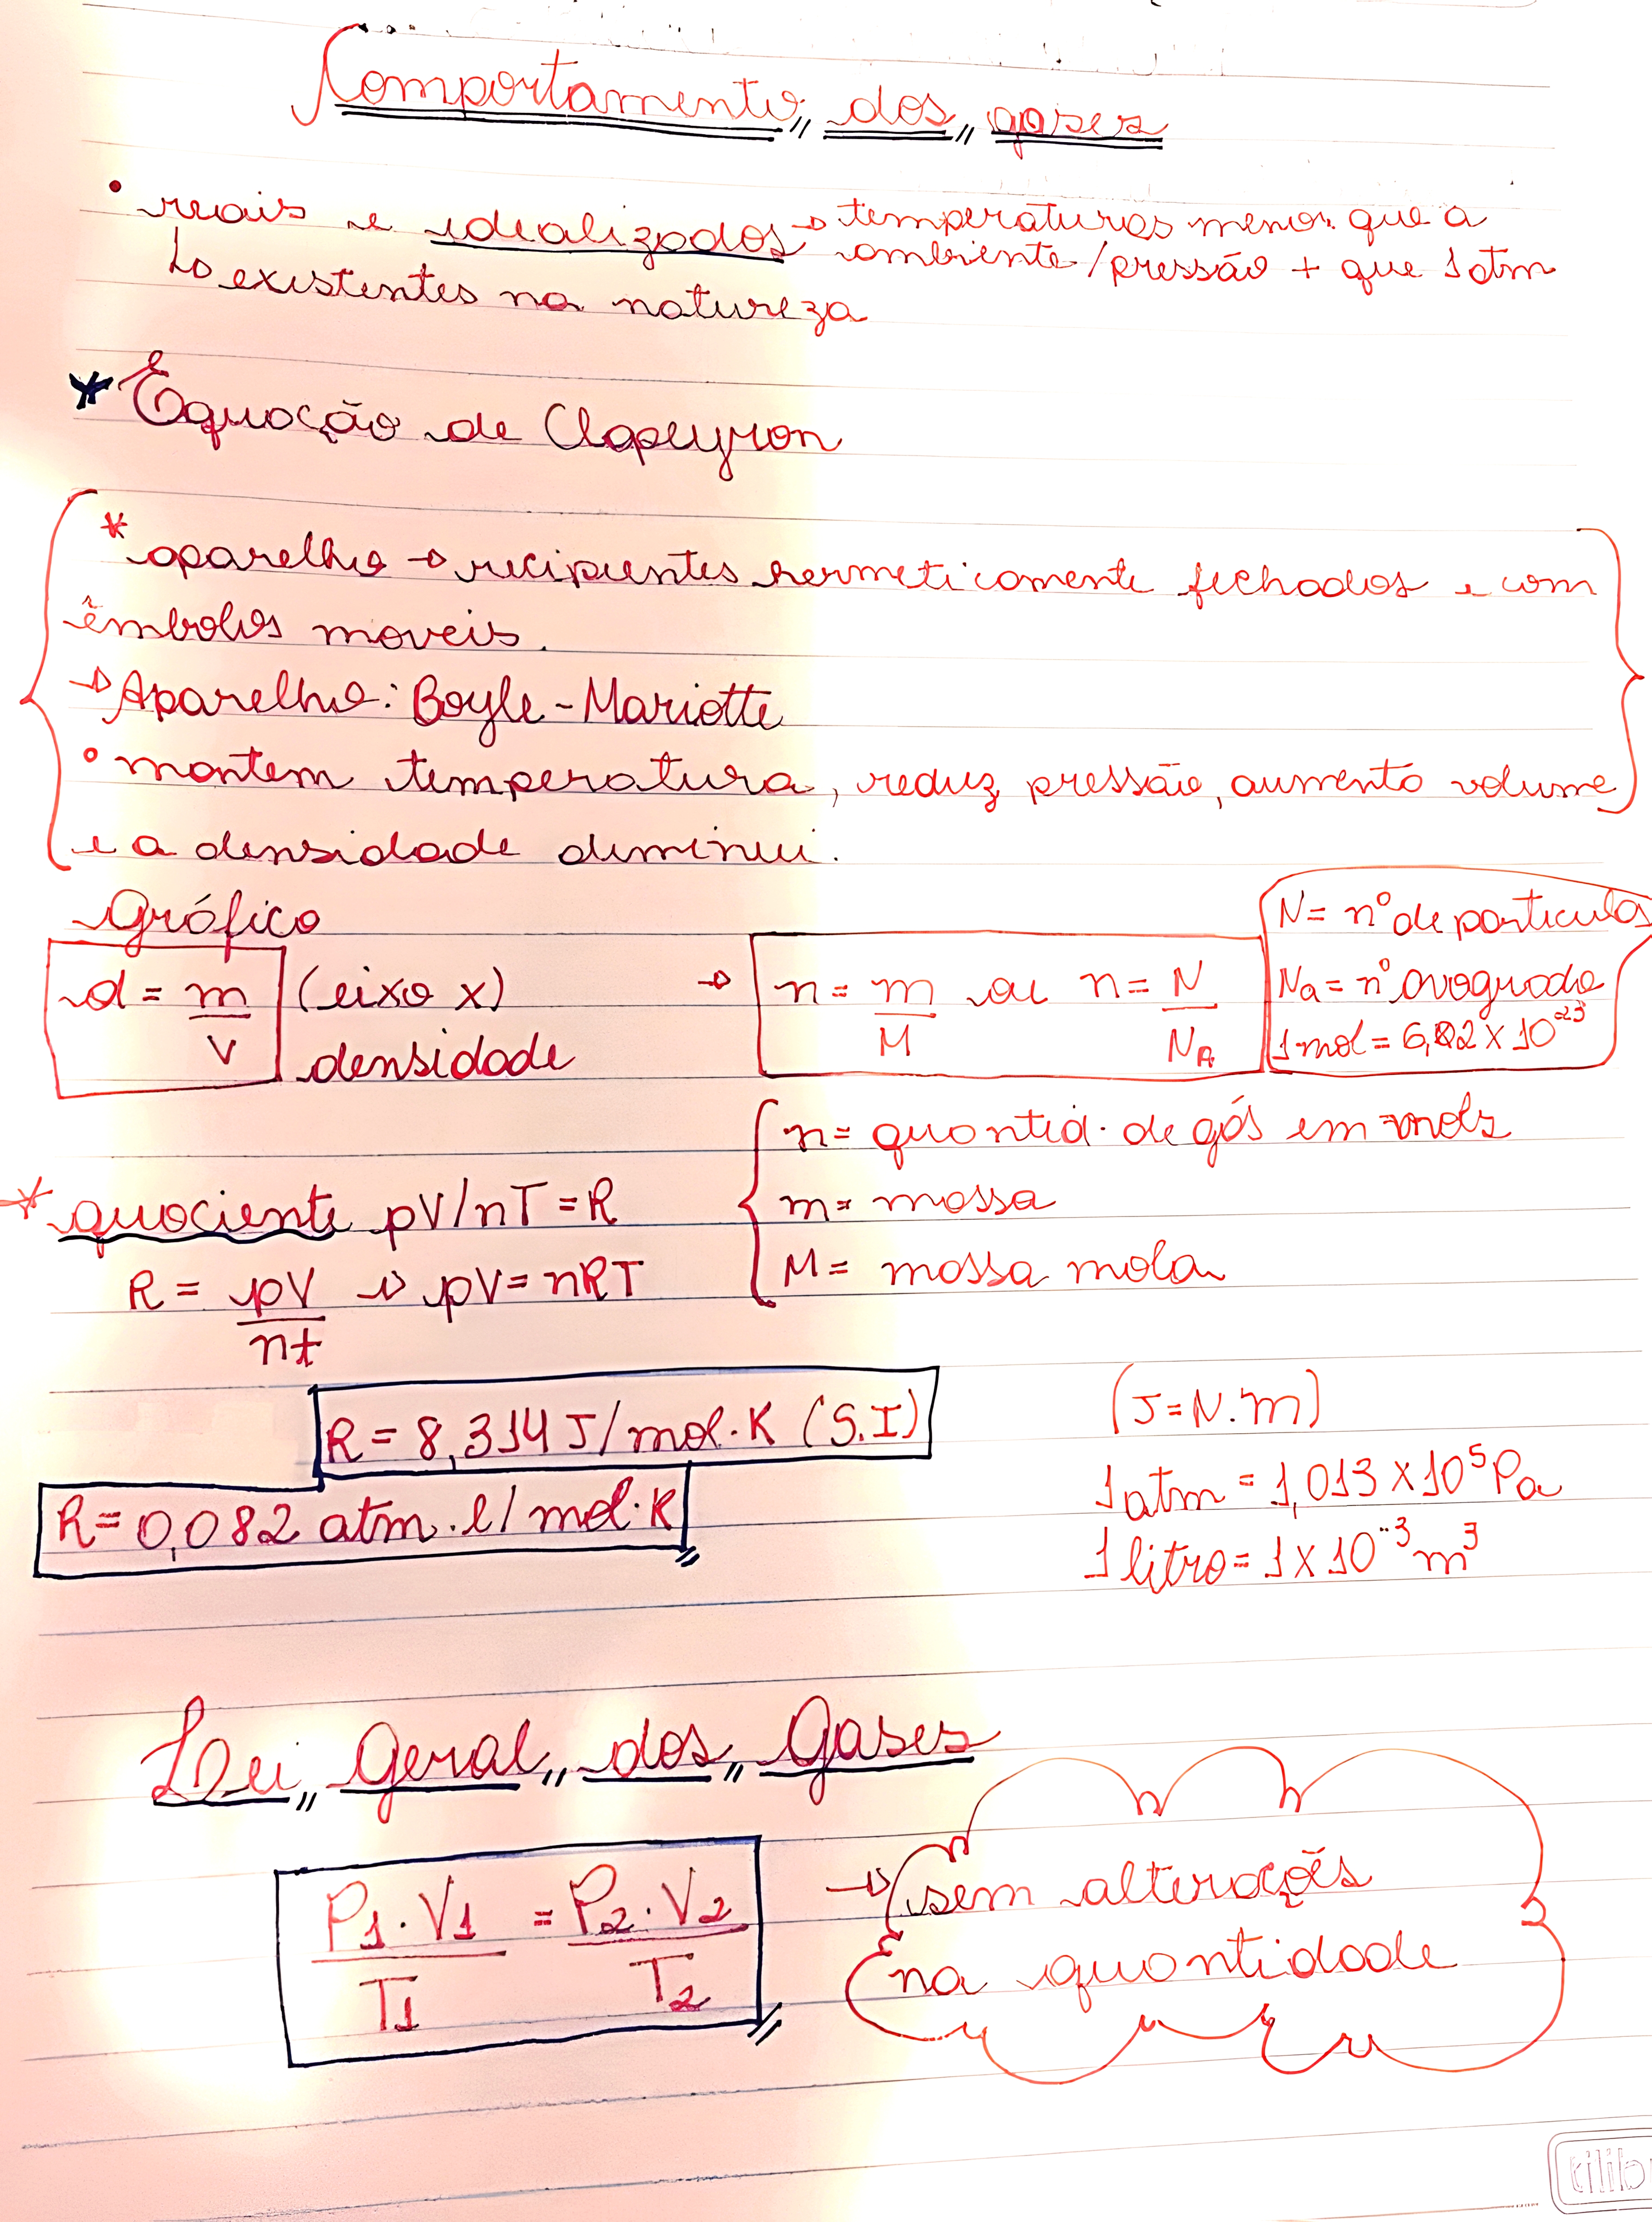 Comportamento dos gases
• reais e idealizados → temperaturas menor que a
ambiente/pressão + que 1atm
↳ existentes na natureza
* Equação de Clapeyron
* aparelho → recipientes hermeticamente fechados e com
êmbolos moveis.
→ Aparelho: Boyle-Mariotte
• mantem temperatura, reduz pressão, aumento volume
e a densidade diminui.
Gráfico
d = m/V (eixo x)
densidade
→ n = m/M ou n = N/NA
N = nº de particulas
Na = nº avogrado
1 mol = 6,02 x 10^-23
n = quantid. de gás em mols
m = massa
M = massa mola
* quociente pV/nT = R
R = pV/nt → pV = nRT
R = 8,314 J/mol.K (S.I)
R = 0,082 atm.l/mol.K
(J = N.m)
1 atm = 1,013 x 10^5 Pa
1 litro = 1 x 10^-3 m^3
Lei Geral dos Gases
P1.V1/T1 = P2.V2/T2
→ sem alterações
na quantidade
tilib